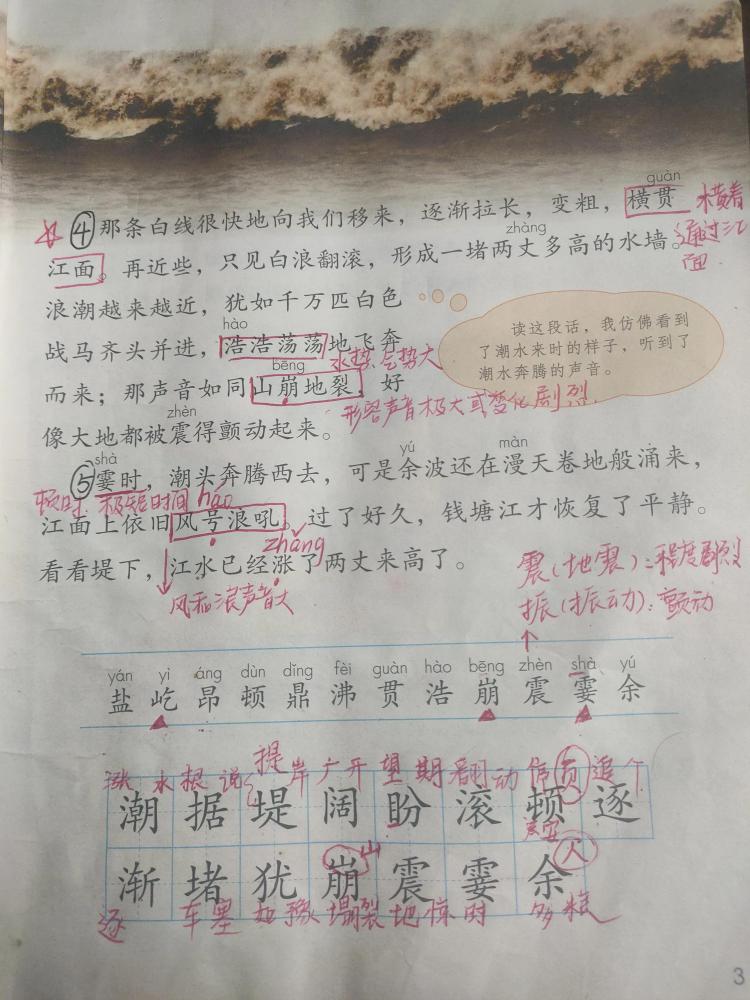 guàn
④那条白线很快地向我们移来，逐渐拉长，变粗，横贯 横着
zhàng
通过江面
江面。再近些，只见白浪翻滚，形成一堵两丈多高的水墙。
浪潮越来越近，犹如千万匹白色
hào
战马齐头并进，浩浩荡荡地飞奔
水势 气势大
bēng
而来；那声音如同山崩地裂，好
形容声音极大或变化剧烈.
zhèn
像大地都被震得颤动起来。
读这段话，我仿佛看到
了潮水来时的样子，听到了
潮水奔腾的声音。
shà yú màn
⑤霎时，潮头奔腾西去，可是余波还在漫天卷地般涌来，
顿时 极短时间 háo
江面上依旧风号浪吼。过了好久，钱塘江才恢复了平静。
zhǎng
看看堤下，江水已经涨了两丈来高了。
风和浪声音大
震(地震):程度剧烈
振(振动):颤动
yán yì áng dùn dǐng fèi guàn hào bēng zhèn shà yú
盐 屹 昂 顿 鼎 沸 贯 浩 崩 震 霎 余
涨水 根 说 提岸 广开 望 期 翻动 页 追个
潮 据 堤 阔 盼 滚 顿 逐
山 人
渐 堵 犹 崩 震 霎 余
逐 车塞 如豫 塌裂 地惊 时 多粮
3